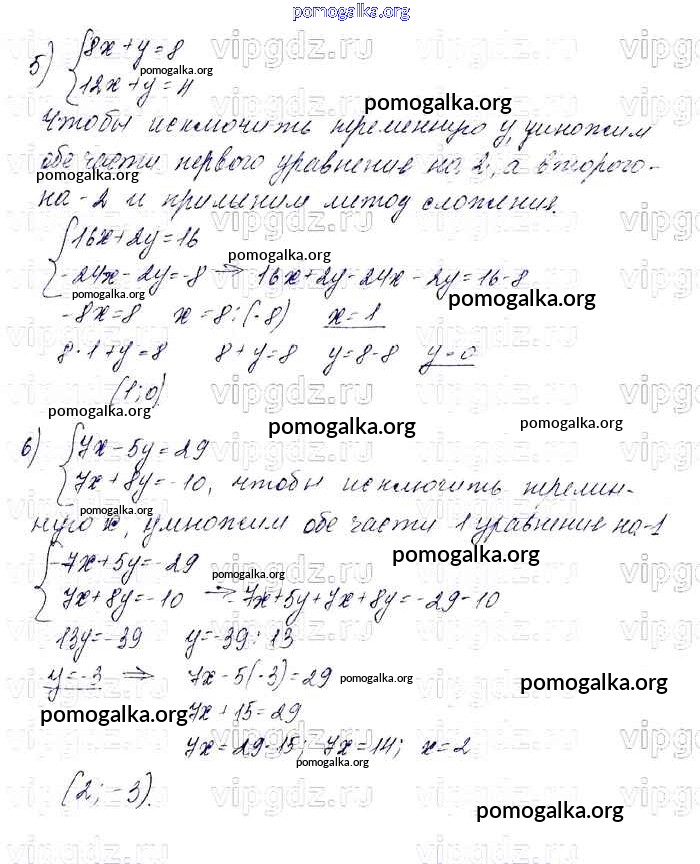 pomogalka.org
5) { 8x + y = 8
12x + y = 4
pomogalka.org
Чтобы исключить переменную y, умножим
pomogalka.org
обе части первого уравнение на 2, а второго -
pomogalka.org
на -2 и применим метод сложения.
{ 16x + 2y = 16
-24x - 2y = -8 → 16x + 2y - 24x - 2y = 16 - 8
pomogalka.org
pomogalka.org
pomogalka.org
-8x = 8 x = 8 : (-8) x = 1
8 · 1 + y = 8 8 + y = 8 y = 8 - 8 y = 0
(1; 0)
pomogalka.org
pomogalka.org
pomogalka.org
6) { 7x - 5y = 29
7x + 8y = -10, чтобы исключить перемен-
pomogalka.org
ную x, умножим обе части 1 уравнение на -1
pomogalka.org
{ -7x + 5y = -29
pomogalka.org
7x + 8y = -10 → -7x + 5y + 7x + 8y = -29 - 10
13y = -39 y = -39 : 13
y = -3 ⇒ 7x - 5(-3) = 29
pomogalka.org
pomogalka.org
pomogalka.org
7x + 15 = 29
7x = 29 - 15; 7x = 14; x = 2
pomogalka.org
(2; -3).
pomogalka.org
vipgdz.ru